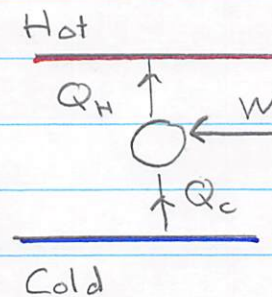 Hot
Q_H
W
Q_c
Cold